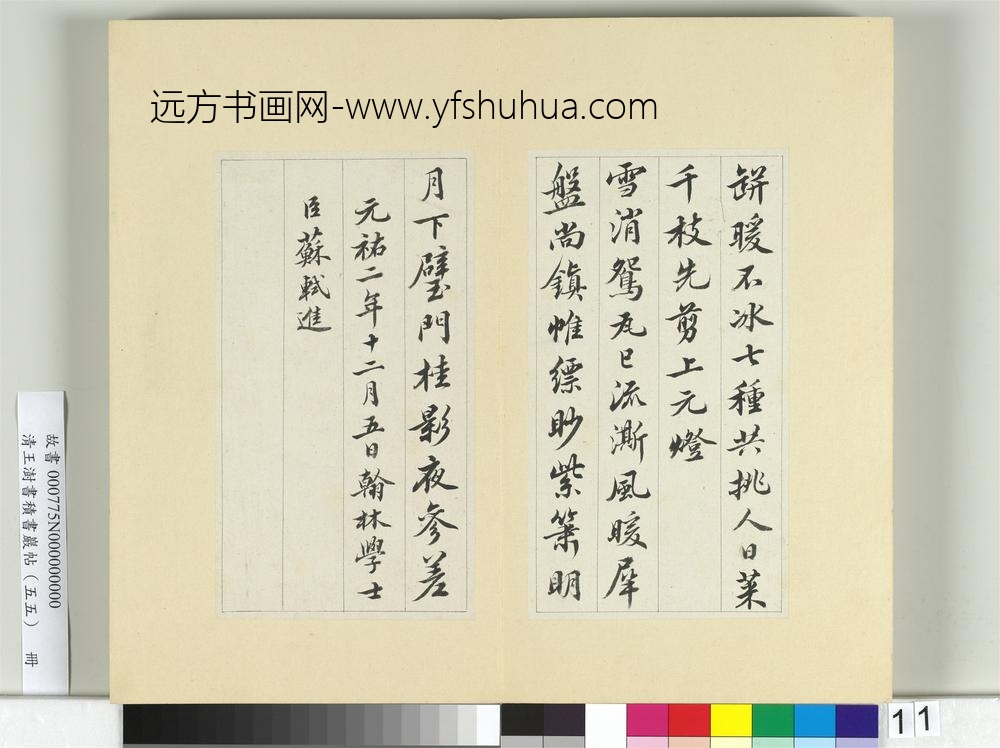 远方书画网-www.yfshuhua.com
缾暖不冰七種共挑人日菜
千枝先剪上元燈
雪消鴛瓦已流澌風暖犀
盤尚鎮帷縹眇紫簫明
月下璧門桂影夜參差
元祐二年十二月五日翰林學士
臣蘇軾進
故書 000775N000000000
清王澍書積書巖帖（五五） 冊
11